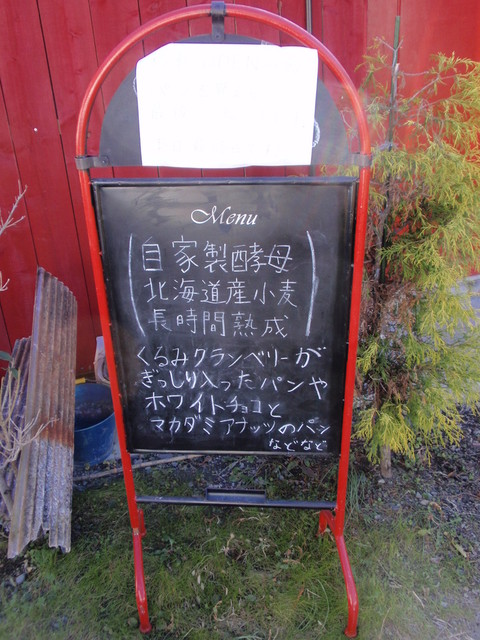 Menu
自家製酵母
北海道産小麦
長時間熟成
くるみクランベリーが
ぎっしり入ったパンや
ホワイトチョコと
マカダミアナッツのパン
などなど